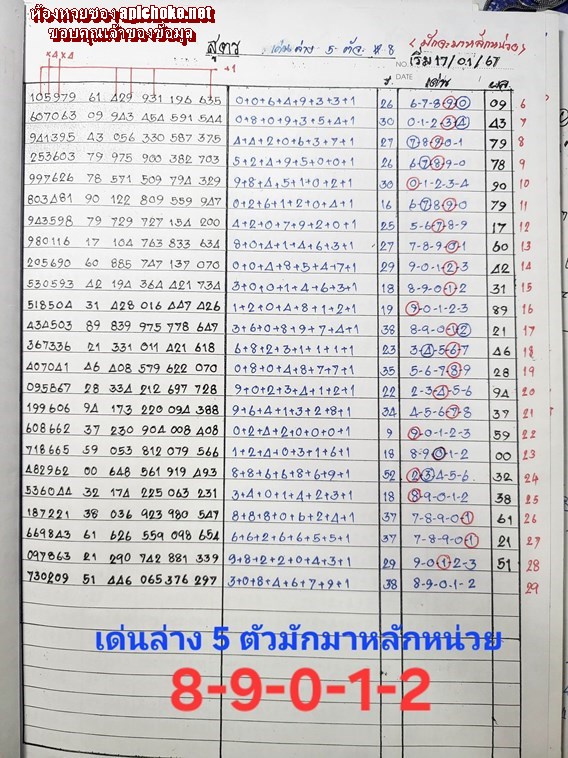 ห้องหวยของ anlchoke.net
ขอบคุณเจ้าของข้อมูล
สูตร เด่นล่าง 5 ตัว ห.8 (มักจะมาหลักหน่วย)
NO. เริ่ม 17/01/67
×4 ×4 +1 DATE
ร. เด่น ผล
105979 61 429 931 196 635 0+0+6+4+9+3+3+1 26 6-7-8-9-0 09 6
607063 09 943 454 591 544 0+8+0+9+3+5+4+1 30 0-1-2-3-4 43 7
941395 43 056 330 587 375 4+4+2+0+6+3+7+1 27 7-8-9-0-1 79 8
253603 79 975 900 382 703 5+2+4+9+5+0+0+1 26 6-7-8-9-0 78 9
997626 78 571 509 794 329 9+8+4+5+1+0+2+1 30 0-1-2-3-4 90 10
803481 90 122 809 559 947 0+2+6+1+2+0+4+1 16 6-7-8-9-0 79 11
943598 79 729 727 154 200 4+2+0+7+9+2+0+1 25 5-6-7-8-9 17 12
980116 17 104 763 833 634 8+0+4+1+4+6+3+1 27 7-8-9-0-1 60 13
205690 60 885 747 137 070 0+0+4+8+5+4+7+1 29 9-0-1-2-3 42 14
530593 42 194 364 421 734 3+0+0+1+4+6+3+1 18 8-9-0-1-2 31 15
518504 31 428 016 447 426 1+2+0+4+8+1+2+1 19 9-0-1-2-3 89 16
434503 89 839 975 778 647 3+6+0+8+9+7+4+1 38 8-9-0-1-2 21 17
367336 21 331 011 421 618 6+8+2+3+1+1+1+1 23 3-4-5-6-7 46 18
407041 46 408 579 622 070 0+8+0+4+8+7+7+1 35 5-6-7-8-9 28 19
095867 28 334 212 697 728 9+0+2+3+4+1+2+1 22 2-3-4-5-6 94 20
199606 94 173 220 094 388 9+6+4+1+3+2+8+1 34 4-5-6-7-8 37 21
608662 37 230 904 008 408 0+2+4+2+0+0+0+1 9 9-0-1-2-3 59 22
718665 59 053 812 079 566 1+2+4+0+3+1+6+1 18 8-9-0-1-2 00 23
482962 00 648 561 919 493 8+8+6+6+8+6+9+1 52 2-3-4-5-6 32 24
536044 32 174 225 063 231 3+4+0+1+4+2+3+1 18 8-9-0-1-2 38 25
187221 38 036 923 980 547 8+8+8+0+6+2+4+1 37 7-8-9-0-1 61 26
669843 61 626 559 098 654 6+6+2+6+6+5+5+1 37 7-8-9-0-1 21 27
097863 21 290 742 881 339 9+8+2+2+0+4+3+1 29 9-0-1-2-3 51 28
730209 51 446 065 376 297 3+0+8+4+6+7+9+1 38 8-9-0-1-2 29
เด่นล่าง 5 ตัวมักมาหลักหน่วย
8-9-0-1-2